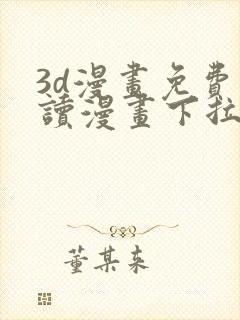 3d漫畫免費
讀漫畫下拉
董某来